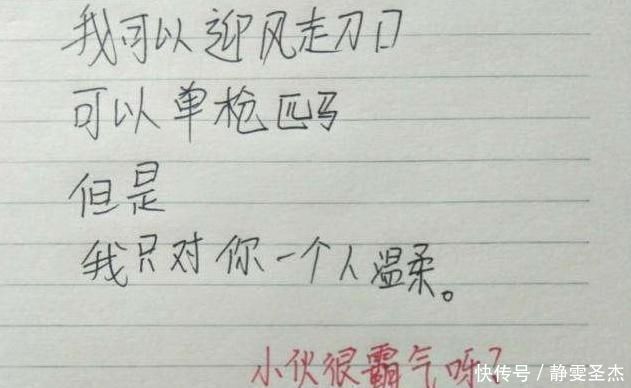 我可以迎风走刀口
可以单枪匹马
但是
我只对你一个人温柔。
小伙很霸气呀？
快传号／静雯圣杰